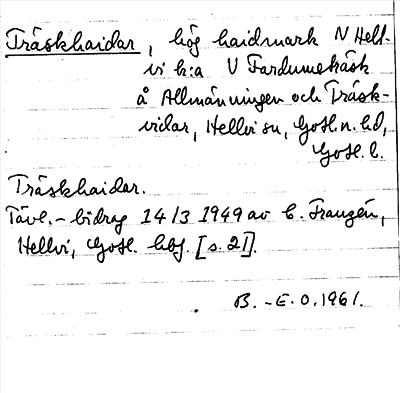 Träskhaidar, hög haidmark N Hell-
vi k:a V Fardumeträsk
å Allmänningen och Träsk-
vidar, Hellvi sn, Gotl. n. hd,
Gotl. l.
Träskhaidar.
Tävl.-bidrag 14/3 1949 av C. Franzén,
Hellvi, Gotl. hbg. [s. 21].
B.-E. O. 1961.